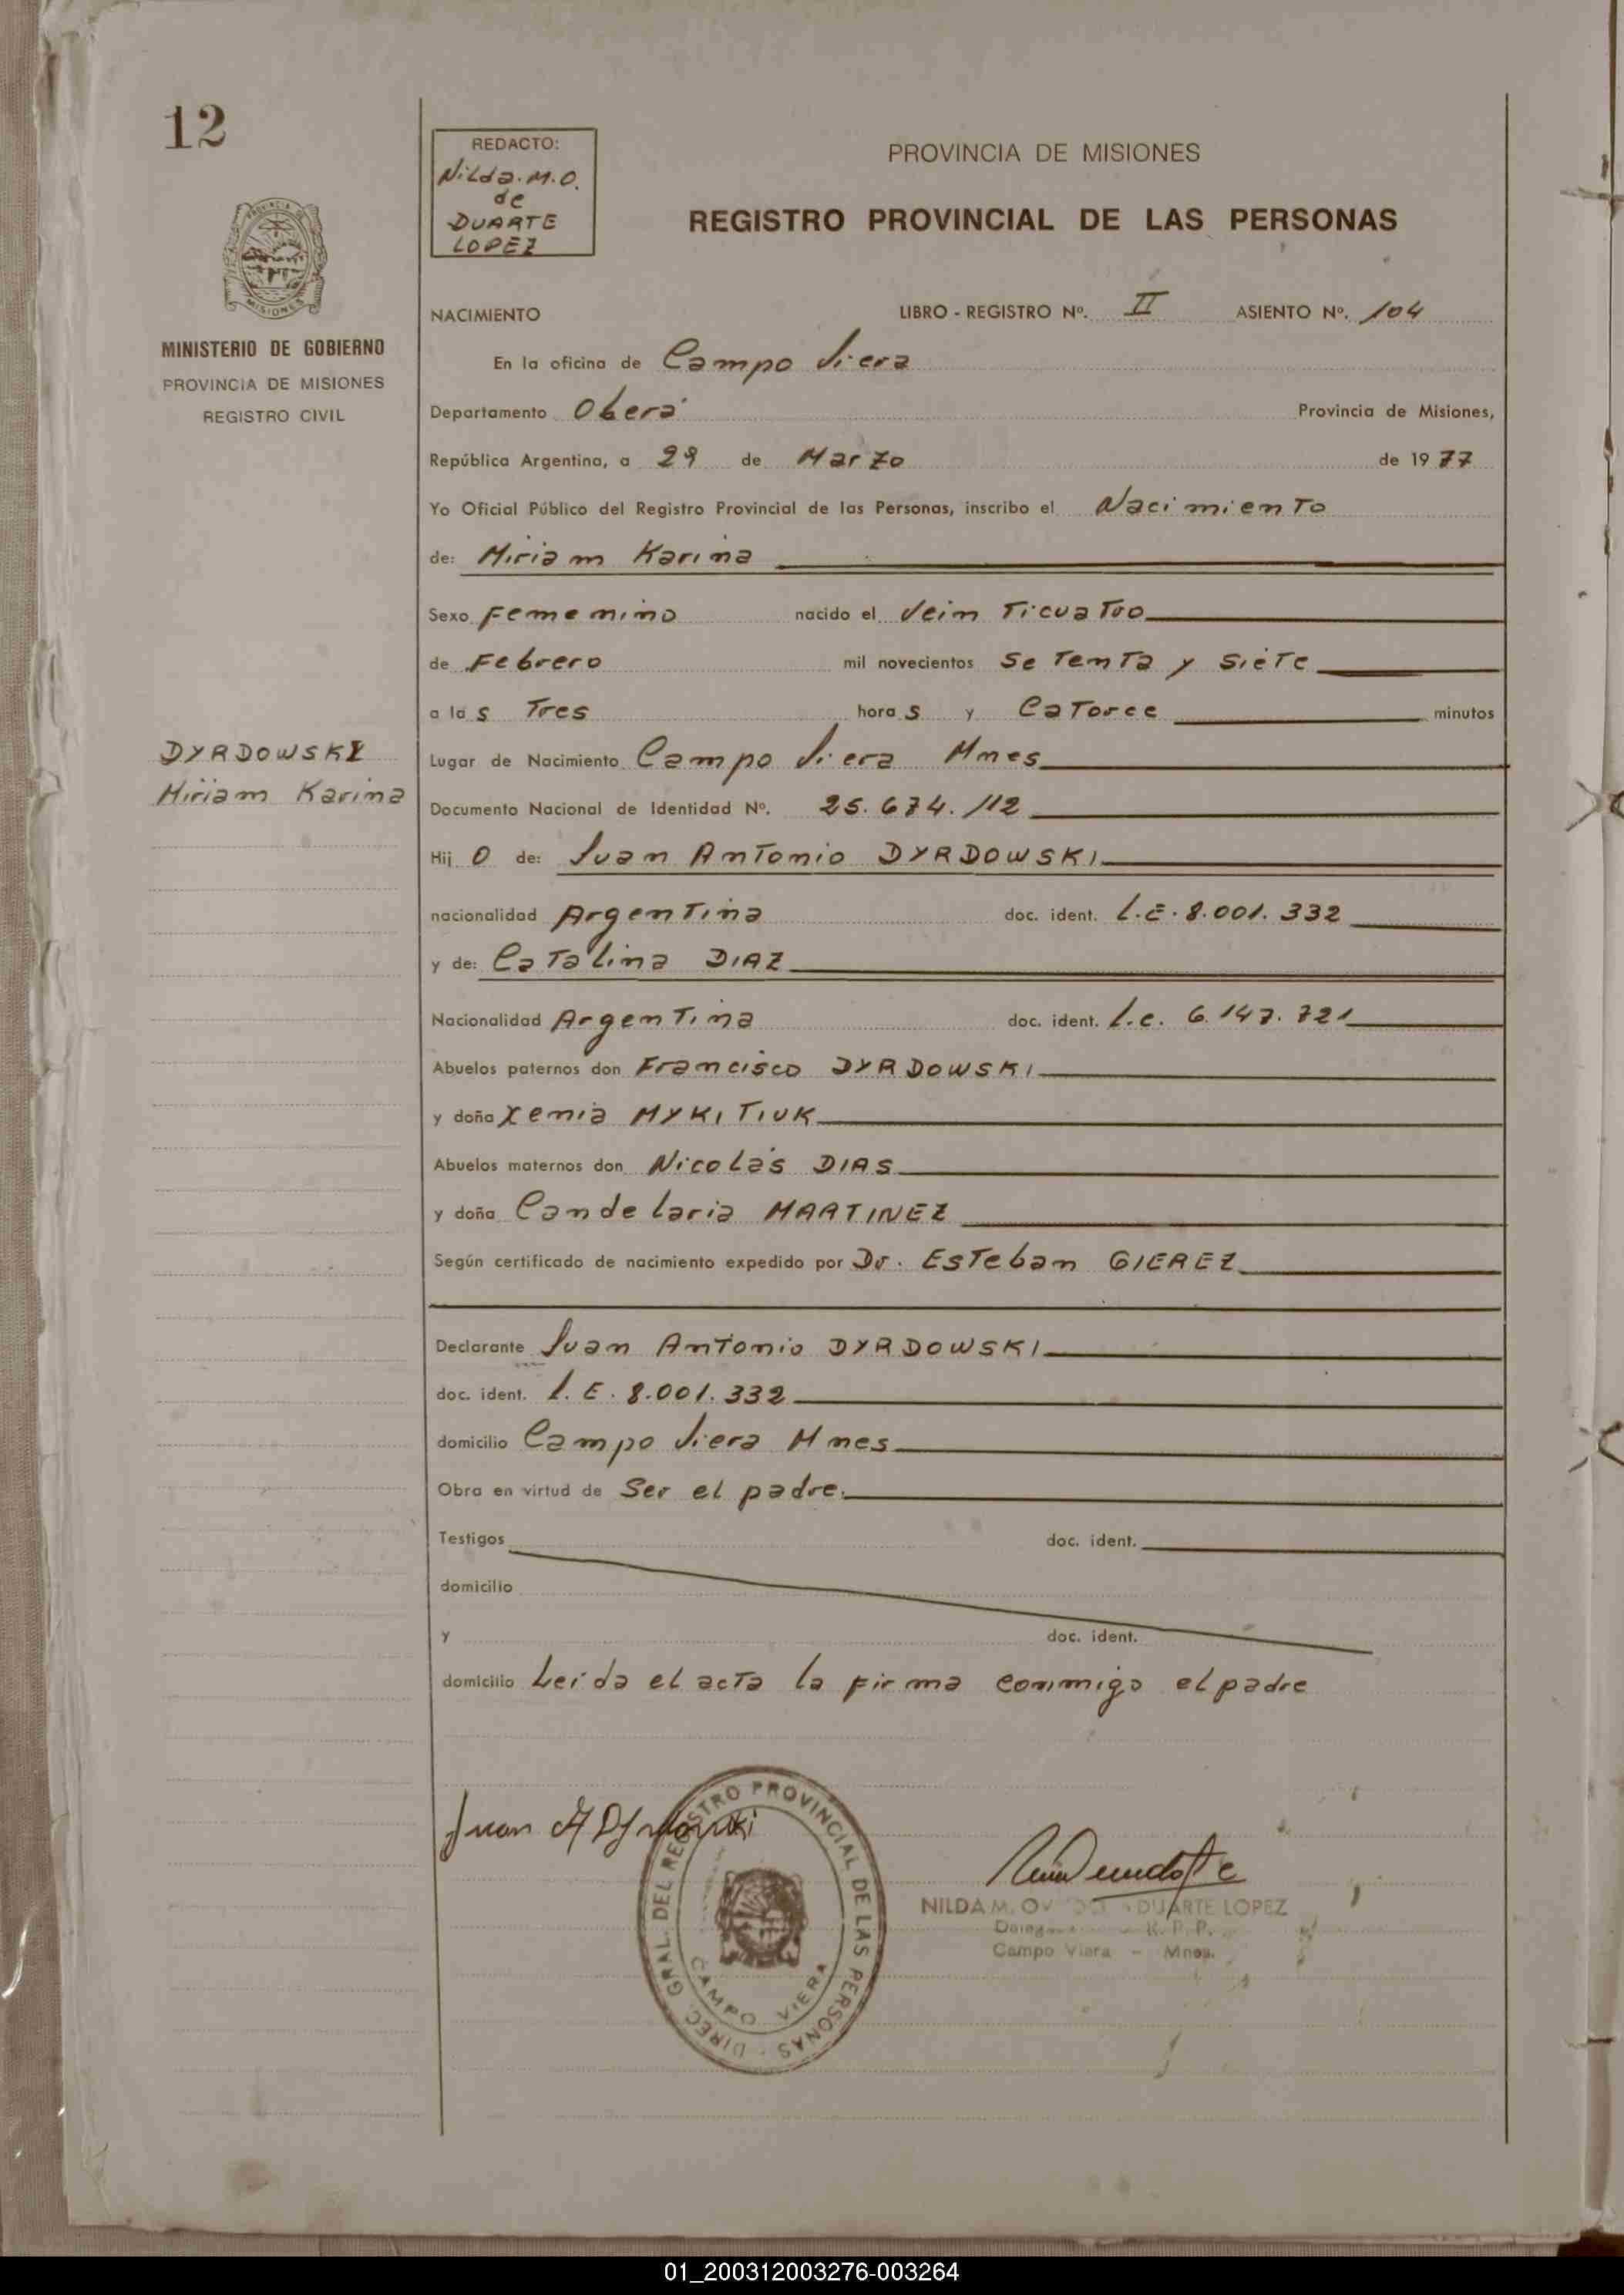 12
REDACTO:
Nilda. M. O.
de
DUARTE
LOPEZ
PROVINCIA DE MISIONES
REGISTRO PROVINCIAL DE LAS PERSONAS
MISIONES
MINISTERIO DE GOBIERNO
PROVINCIA DE MISIONES
REGISTRO CIVIL
NACIMIENTO LIBRO - REGISTRO Nº. II ASIENTO Nº. 104
En la oficina de Campo Viera
Departamento Oberá Provincia de Misiones,
República Argentina, a 29 de Marzo de 1977
Yo Oficial Público del Registro Provincial de las Personas, inscribo el Nacimiento
de: Miriam Karina
Sexo Femenino nacido el Veinticuatro
de Febrero mil novecientos Setenta y Siete
a las Tres horas y Catorce minutos
DYRDOWSKI
Miriam Karina
Lugar de Nacimiento Campo Viera Mnes
Documento Nacional de Identidad Nº. 25.674.112
Hij O de: Juan Antonio DYRDOWSKI
nacionalidad Argentina doc. ident. L.E. 8.001.332
y de: Catalina DIAZ
Nacionalidad Argentina doc. ident. L.C. 6.147.721
Abuelos paternos don Francisco DYRDOWSKI
y doña Xenia MYKITIUK
Abuelos maternos don Nicolás DIAS
y doña Candelaria MARTINEZ
Según certificado de nacimiento expedido por Dr. Esteban GIEREZ
Declarante Juan Antonio DYRDOWSKI
doc. ident. L.E. 8.001.332
domicilio Campo Viera Mnes
Obra en virtud de Ser el padre.
Testigos doc. ident.
domicilio
y doc. ident.
domicilio Leída el acta la firma conmigo el padre
Juan A Dyrdowski
DIREC. GRAL. DEL REGISTRO PROVINCIAL DE LAS PERSONAS -
CAMPO VIERA
NILDA M. DUARTE LOPEZ
R. P. P.
Campo Viera - Mnes.
01_200312003276-003264